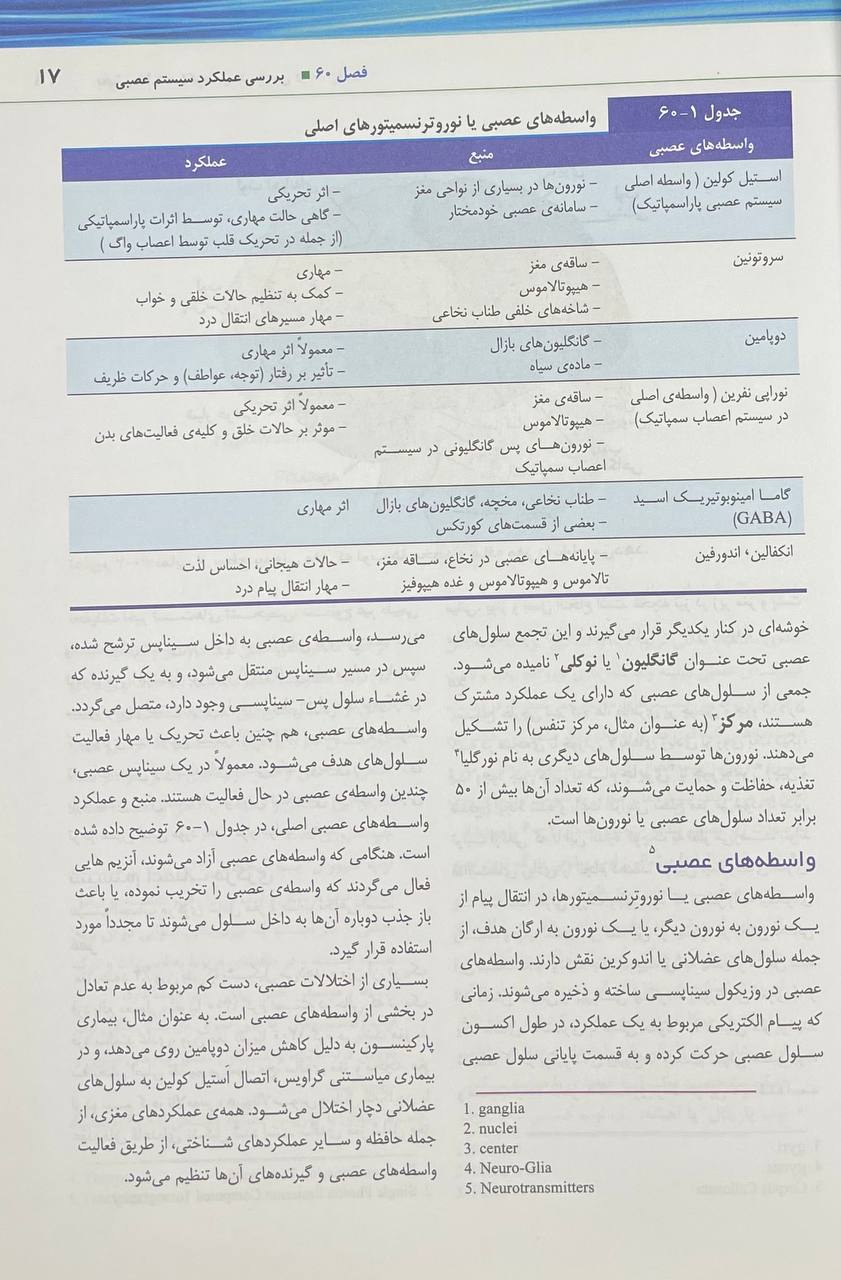 فصل ۶۰ ■ بررسی عملکرد سیستم عصبی ۱۷
جدول ۱-۶۰ واسطه‌های عصبی یا نوروترنسمیتورهای اصلی
واسطه‌های عصبی منبع عملکرد
استیل کولین ( واسطه اصلی – نورون‌ها در بسیاری از نواحی مغز – اثر تحریکی
سیستم عصبی پاراسمپاتیک) – سامانه‌ی عصبی خودمختار – گاهی حالت مهاری، توسط اثرات پاراسمپاتیکی
(از جمله در تحریک قلب توسط اعصاب واگ )
سروتونین – ساقه‌ی مغز – مهاری
– هیپوتالاموس – کمک به تنظیم حالات خلقی و خواب
– شاخه‌های خلفی طناب نخاعی – مهار مسیرهای انتقال درد
دوپامین – گانگلیون‌های بازال – معمولاً اثر مهاری
– ماده‌ی سیاه – تأثیر بر رفتار (توجه، عواطف) و حرکات ظریف
نوراپی نفرین ( واسطه‌ی اصلی – ساقه‌ی مغز – معمولاً اثر تحریکی
در سیستم اعصاب سمپاتیک) – هیپوتالاموس – موثر بر حالات خلق و کلیه‌ی فعالیت‌های بدن
– نورون‌های پس گانگلیونی در سیستم
اعصاب سمپاتیک
گاما امینوبوتیریک اسید – طناب نخاعی، مخچه، گانگلیون‌های بازال اثر مهاری
(GABA) – بعضی از قسمت‌های کورتکس
انکفالین، اندورفین – پایانه‌های عصبی در نخاع، ساقه مغز، – حالات هیجانی، احساس لذت
تالاموس و هیپوتالاموس و غده هیپوفیز – مهار انتقال پیام درد
خوشه‌ای در کنار یکدیگر قرار می‌گیرند و این تجمع سلول‌های
عصبی تحت عنوان گانگلیون۱ یا نوکلی۲ نامیده می‌شود.
جمعی از سلول‌های عصبی که دارای یک عملکرد مشترک
هستند، مرکز۳ (به عنوان مثال، مرکز تنفس) را تشکیل
می‌دهند. نورون‌ها توسط سلول‌های دیگری به نام نورگلیا۴
تغذیه، حفاظت و حمایت می‌شوند، که تعداد آن‌ها بیش از ۵۰
برابر تعداد سلول‌های عصبی یا نورون‌ها است.
واسطه‌های عصبی۵
واسطه‌های عصبی یا نوروترنسمیتورها، در انتقال پیام از
یک نورون به نورون دیگر، یا یک نورون به ارگان هدف، از
جمله سلول‌های عضلانی یا اندوکرین نقش دارند. واسطه‌های
عصبی در وزیکول سیناپسی ساخته و ذخیره می‌شوند. زمانی
که پیام الکتریکی مربوط به یک عملکرد، در طول اکسون
سلول عصبی حرکت کرده و به قسمت پایانی سلول عصبی
1. ganglia
2. nuclei
3. center
4. Neuro-Glia
5. Neurotransmitters
می‌رسد، واسطه‌ی عصبی به داخل سیناپس ترشح شده،
سپس در مسیر سیناپس منتقل می‌شود، و به یک گیرنده که
در غشاء سلول پس- سیناپسی وجود دارد، متصل می‌گردد.
واسطه‌های عصبی، هم چنین باعث تحریک یا مهار فعالیت
سلول‌های هدف می‌شود. معمولاً در یک سیناپس عصبی،
چندین واسطه‌ی عصبی در حال فعالیت هستند. منبع و عملکرد
واسطه‌های عصبی اصلی، در جدول ۱-۶۰ توضیح داده شده
است. هنگامی که واسطه‌های عصبی آزاد می‌شوند، آنزیم هایی
فعال می‌گردند که واسطه‌ی عصبی را تخریب نموده، یا باعث
باز جذب دوباره آن‌ها به داخل سلول می‌شوند تا مجدداً مورد
استفاده قرار گیرد.
بسیاری از اختلالات عصبی، دست کم مربوط به عدم تعادل
در بخشی از واسطه‌های عصبی است. به عنوان مثال، بیماری
پارکینسون به دلیل کاهش میزان دوپامین روی می‌دهد، و در
بیماری میاستنی گراویس، اتصال آستیل کولین به سلول‌های
عضلانی دچار اختلال می‌شود. همه‌ی عملکردهای مغزی، از
جمله حافظه و سایر عملکردهای شناختی، از طریق فعالیت
واسطه‌های عصبی و گیرنده‌های آن‌ها تنظیم می‌شود.